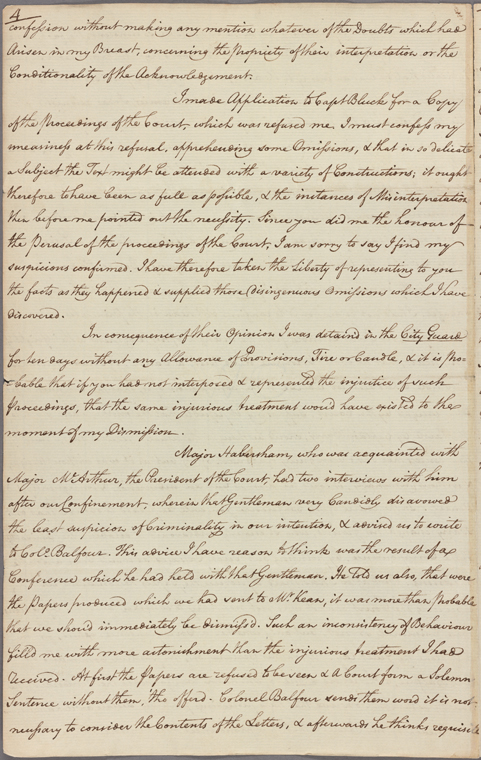 4
confession without making any mention whatever of the Doubts which had
Arisen in my Breast, concerning the Propriety of their interpretation or the
Conditionality of the Acknowledgement.
I made Application to Capt Bluck for a Copy
of the Proceedings of the Court, which was refused me. I must confess my
uneasiness at this refusal, apprehending some Omissions, & that in so delicate
a Subject the Text might be attended with a variety of Constructions; it ought
therefore to have been as full as possible, & the instances of Misinterpretation
then before me pointed out the necessity. Since you did me the honour of
the Perusal of the proceedings of the Court, I am sorry to say I find my
suspicions confirmed. I have therefore taken the liberty of representing to you
the facts as they happened & supplied those Disingenuous Omissions which I have
discovered.
In consequence of their Opinion I was detaind in the City Guard
for ten days without any Allowance of Provisions, Fire or Candle, & it is Pro-
-bable that if you had not interposed & represented the injustice of such
Proceedings, that the same injurious treatment would have existed to the
moment of my Dismission.
Major Habersham, who was acquainted with
Major McArthur, the President of the Court, had two interviews with him
after our Confinement, wherein that Gentleman very Candidly disavowed
the least suspicion of Criminality in our intention, & advised us to write
to Colo. Balfour. This advice I have reason to think was the result of a
Conference which he had held with that Gentleman. He Told us also, that were
the Papers produced which we had sent to Mr. Kean, it was more than Probable
that we should immediately be dismiss'd. Such an inconsistency of Behaviour
fill'd me with more astonishment than the injurious treatment I had
received. At first the Papers are refused to be seen & A Court form a Solemn
Sentence without them, tho offerd. Colonel Balfour sends them word it is not
necessary to consider the Contents of the Letters, & afterwards he thinks requisite